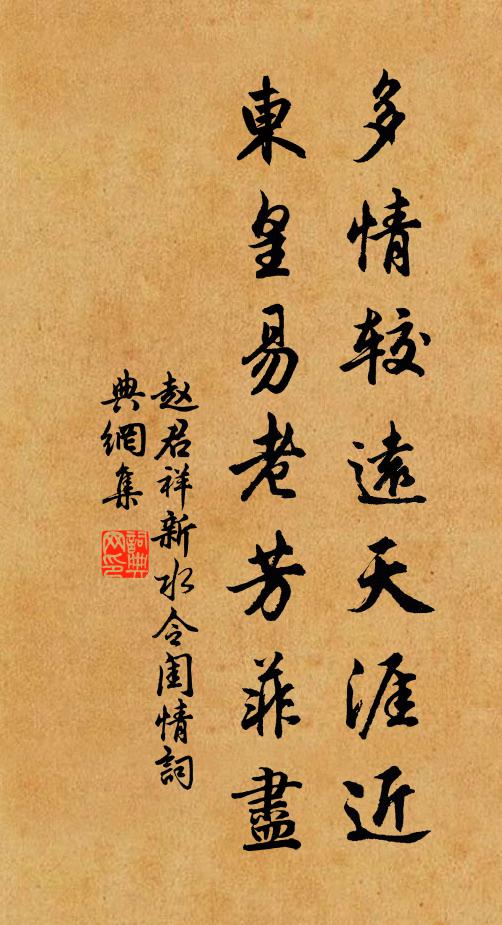 多情较遠天涯近
東皇易老芳菲盡
赵君祥新水令闺情詞
典網集
詞典网印